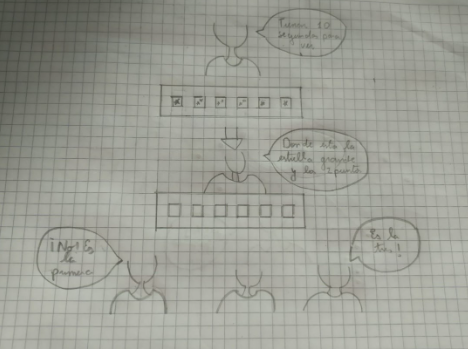 Tienen 10
segundos para
ver
Donde esta la
estrella grande
y la 2 punta
¡No! Es
la
primera
Es la
tres!